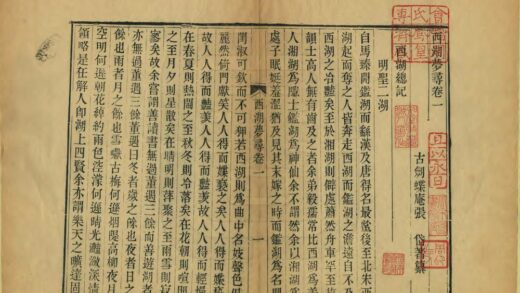 西湖夢尋卷一
古劍蝶庵張 岱著纂
西湖總記
明聖二湖
自馬臻開鑑湖而繇漢及唐得名最蚤後至北宋西
湖起而奪之人皆奔走西湖而鑑湖之澹遠自不及
西湖之冶豔矣至於湘湖則僻處蕭然舟車罕至故
韻士高人無有齒及之者余弟毅孺常比西湖為美
人湘湖為隱士鑑湖為神仙余不謂然余以湘湖為
處子眠娗羞澀猶及見其未嫁之時而鑑湖為名門
西湖夢尋卷一 一
閨淑可欽而不可狎若西湖則為曲中名妓聲色俱
麗然倚門獻笑人人得而媟褻之矣人人得而媟褻
故人人得而豔羨人人得而豔羨故人人得而輕慢
在春夏則熱鬧之至秋冬則冷落矣在花朝則喧鬨
之至月夕則星散矣在晴明則萍聚之至雨雪則寂
寥矣故余嘗謂善讀書無過董遇三餘而善遊湖者
亦無過董遇三餘董遇曰冬者歲之餘也夜者日之
餘也雨者月之餘也雪巘古梅何遜烟堤高柳夜月
空明何遜朝花綽約雨色涳濛何遜晴光灩瀲深情
領略是在解人即湖上四賢余亦謂樂天之曠達固